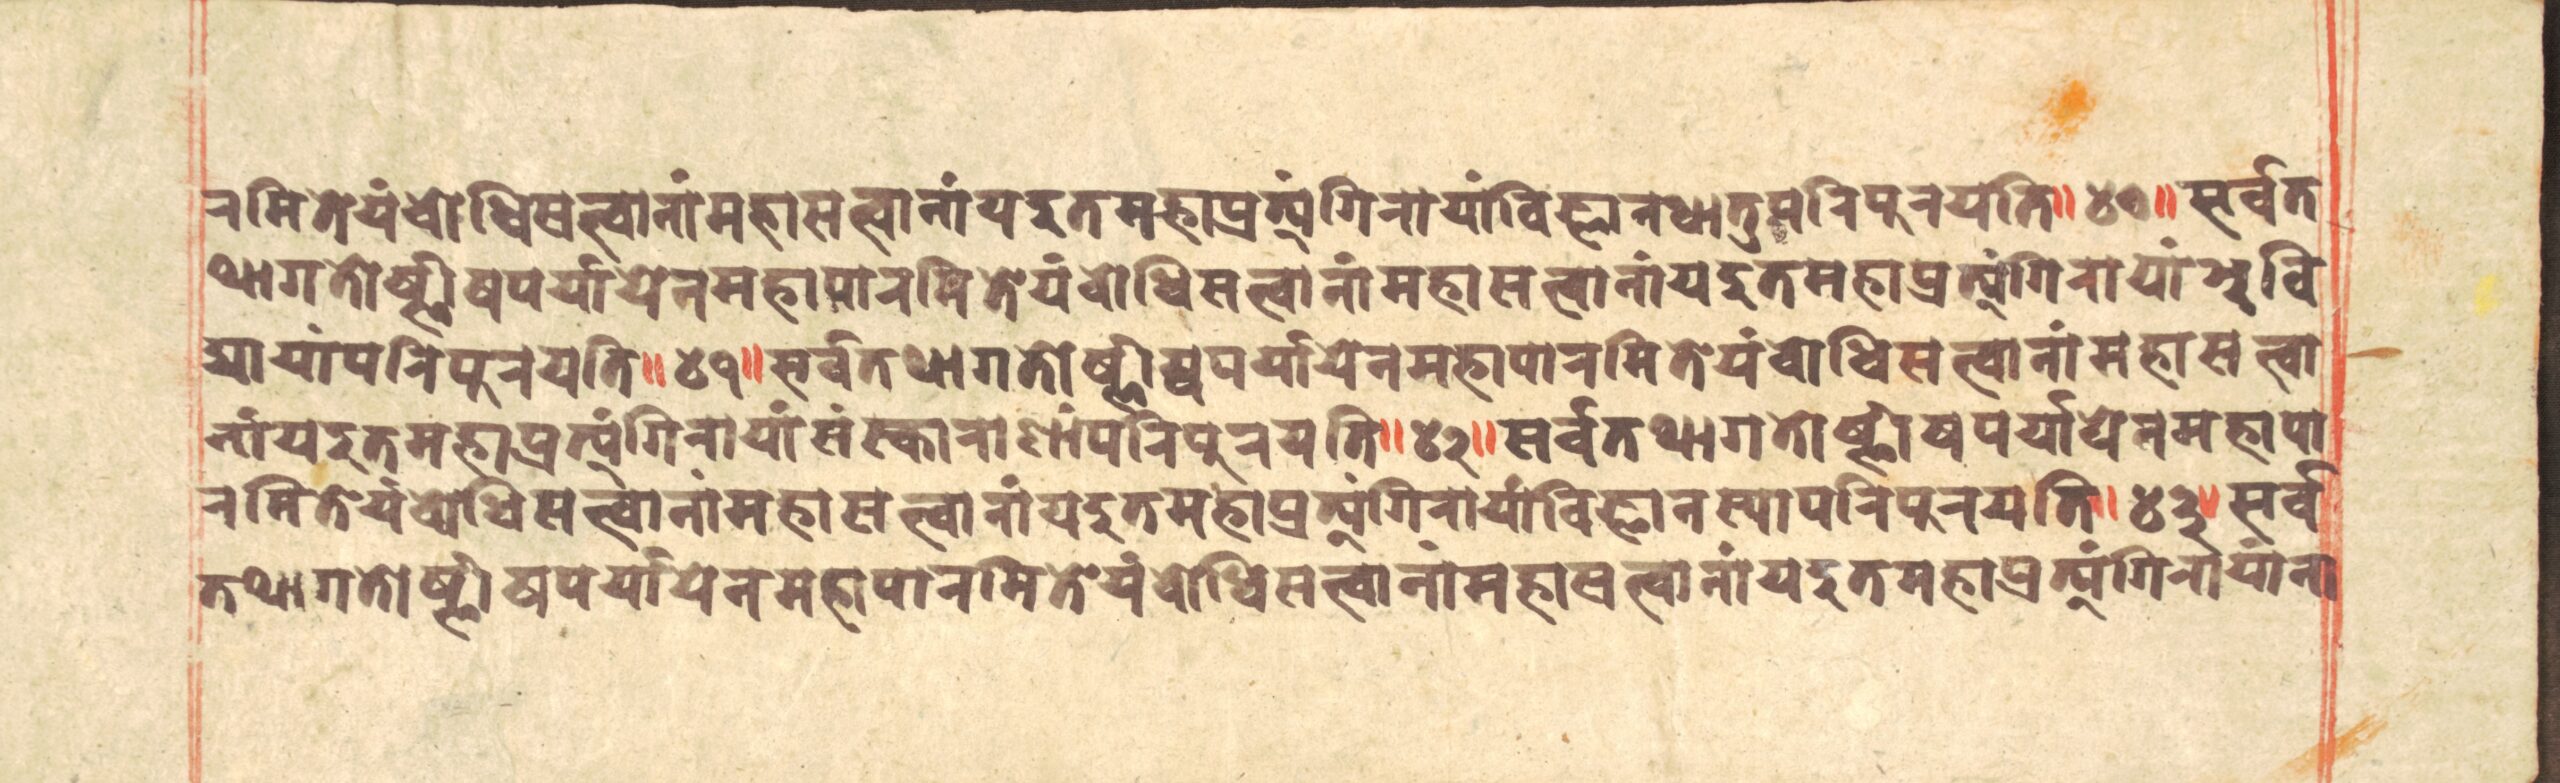 रमितेयंबोधिसत्वानांमहासत्वानांयदुतमहाप्रत्यंगिरायांविज्ञानधातुपरिपुरयति॥४०॥सर्वत
थागतोष्णीषपर्यायेनमहापारमितेयंबोधिसत्वानांमहासत्वानांयदुतमहाप्रत्यंगिरायांअवि
द्यायांपरिपुरयति॥४१॥सर्वतथागतोष्णीषपर्यायेनमहापारमितेयंबोधिसत्वानांमहासत्वा
नांयदुतमहाप्रत्यंगिरायांसंस्काराणांपरिपुरयति॥४२॥सर्वतथागतोष्णीषपर्यायेनमहापा
रमितेयंबोधिसत्वानांमहासत्वानांयदुतमहाप्रत्यंगिरायांविज्ञानस्यापरिपुरयति॥४३॥सर्व
तथागतोष्णीषपर्यायेनमहापारमितेयंबोधिसत्वानांमहासत्वानांयदुतमहाप्रत्यंगिरायांना